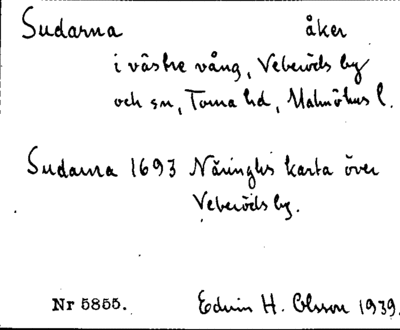 Sudarna åker
i västre vång, Veberöds by
och sn, Torna hd, Malmöhus l.
Sudarna 1693 Näringhs karta över
Veberöds by.
Nr 5855. Edvin H. Olsson 1939.